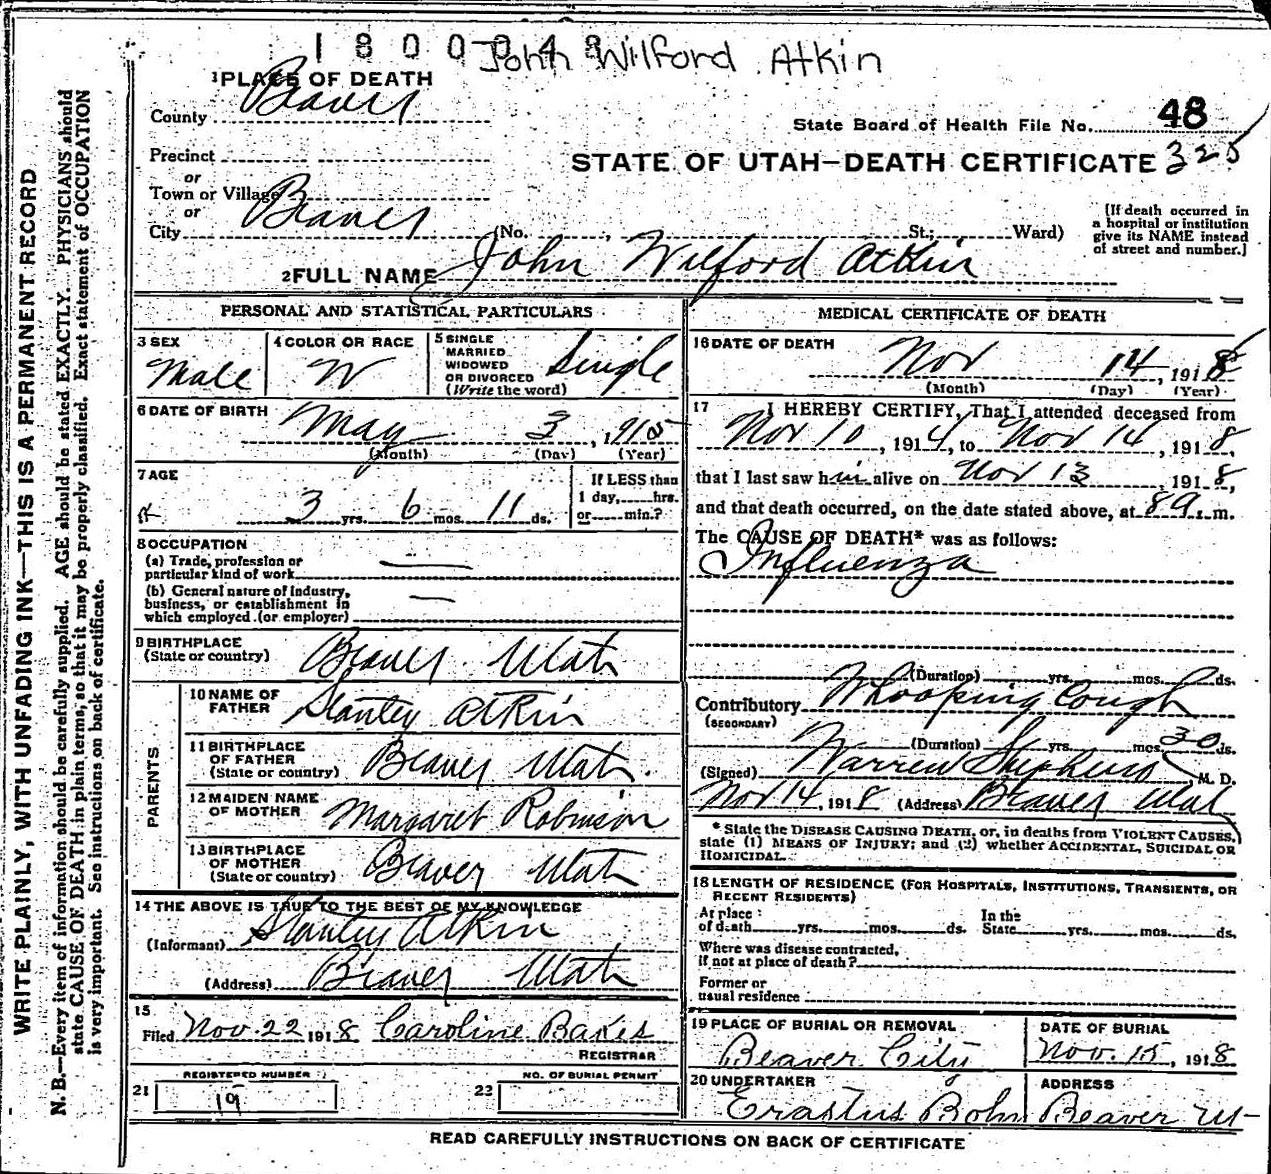 1 8 0 0 0 4 8 John Wilford Atkin
1 PLACE OF DEATH
County Beaver
State Board of Health File No. 48
Precinct
STATE OF UTAH—DEATH CERTIFICATE 325
or
Town or Village
or
City Beaver (No. , St.; Ward)
[If death occurred in
a hospital or institution
give its NAME instead
of street and number.]
2 FULL NAME John Wilford Atkin
PERSONAL AND STATISTICAL PARTICULARS
3 SEX
Male
4 COLOR OR RACE
W
5 SINGLE
MARRIED
WIDOWED
OR DIVORCED
(Write the word)
Single
6 DATE OF BIRTH
May 3, 1915
(Month) (Day) (Year)
7 AGE
3 yrs. 6 mos. 11 ds.
If LESS than
1 day, hrs.
or min.?
8 OCCUPATION
(a) Trade, profession or
particular kind of work —
(b) General nature of industry,
business, or establishment in
which employed (or employer) —
9 BIRTHPLACE
(State or country) Beaver Utah
PARENTS
10 NAME OF
FATHER Stanley Atkin
11 BIRTHPLACE
OF FATHER
(State or country) Beaver Utah.
12 MAIDEN NAME
OF MOTHER Margaret Robinson
13 BIRTHPLACE
OF MOTHER
(State or country) Beaver Utah
14 THE ABOVE IS TRUE TO THE BEST OF MY KNOWLEDGE
(Informant) Stanley Atkin
(Address) Beaver Utah
15
Filed Nov. 22 1918 Caroline Bakes
REGISTRAR
REGISTERED NUMBER
21 19
NO. OF BURIAL PERMIT
23
MEDICAL CERTIFICATE OF DEATH
16 DATE OF DEATH
Nov 14, 1918
(Month) (Day) (Year)
17 I HEREBY CERTIFY, That I attended deceased from
Nov 10, 1914, to Nov 14, 1918,
that I last saw him alive on Nov 13, 1918,
and that death occurred, on the date stated above, at 8 a. m.
The CAUSE OF DEATH* was as follows:
Influenza
(Duration) yrs. mos. ds.
Contributory Whooping Cough
(SECONDARY)
(Duration) yrs. mos. 30 ds.
(Signed) Warren Shepherd M. D.
Nov 14, 1918 (Address) Beaver Utah
* State the DISEASE CAUSING DEATH, or, in deaths from VIOLENT CAUSES,
state (1) MEANS OF INJURY; and (2) whether ACCIDENTAL, SUICIDAL OR
HOMICIDAL.
18 LENGTH OF RESIDENCE (FOR HOSPITALS, INSTITUTIONS, TRANSIENTS, OR
RECENT RESIDENTS)
At place
of death yrs. mos. ds.
In the
State yrs. mos. ds.
Where was disease contracted,
if not at place of death?
Former or
usual residence
19 PLACE OF BURIAL OR REMOVAL
Beaver City
DATE OF BURIAL
Nov. 15, 1918
20 UNDERTAKER
Erastus Bohn
ADDRESS
Beaver Ut-
READ CAREFULLY INSTRUCTIONS ON BACK OF CERTIFICATE
WRITE PLAINLY, WITH UNFADING INK—THIS IS A PERMANENT RECORD
N. B.—Every item of information should be carefully supplied. AGE should be stated EXACTLY. PHYSICIANS should
state CAUSE OF DEATH in plain terms, so that it may be properly classified. Exact statement of OCCUPATION
is very important. See instructions on back of certificate.